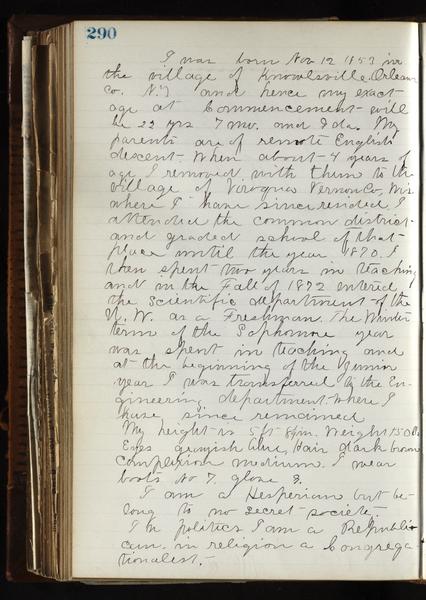 290
I was born Nov 12 1853 in
the village of Knowlsville Orleans
Co. N.Y and hence my exact
age at Commencement will
be 22 yrs 7 mo. and da. My
parents are of remote English
descent. When about 4 years of
age I removed with them to the
village of Viroqua Vernon Co, Wis.
where I have since resided. I
attended the common district
and graded school of that
place until the year 1870. I
then spent two years in teaching
and in the Fall of 1872 entered
the Scientific department of the
U. W. as a Freshman. The Winter
term of the Sophomore year
was spent in teaching and
at the beginning of the Junior
year I was transferred to the En-
gineering department where I
have since remained.
My height is 5 ft 8 in. Weight 150 lbs
Eyes grayish blue, Hair dark brown
Complexion medium. I wear
boots No 7. glove
I am a Hesperian but be-
long to no secret society
In politics I am a Republi-
can. in religion a Congrega-
tionalist.